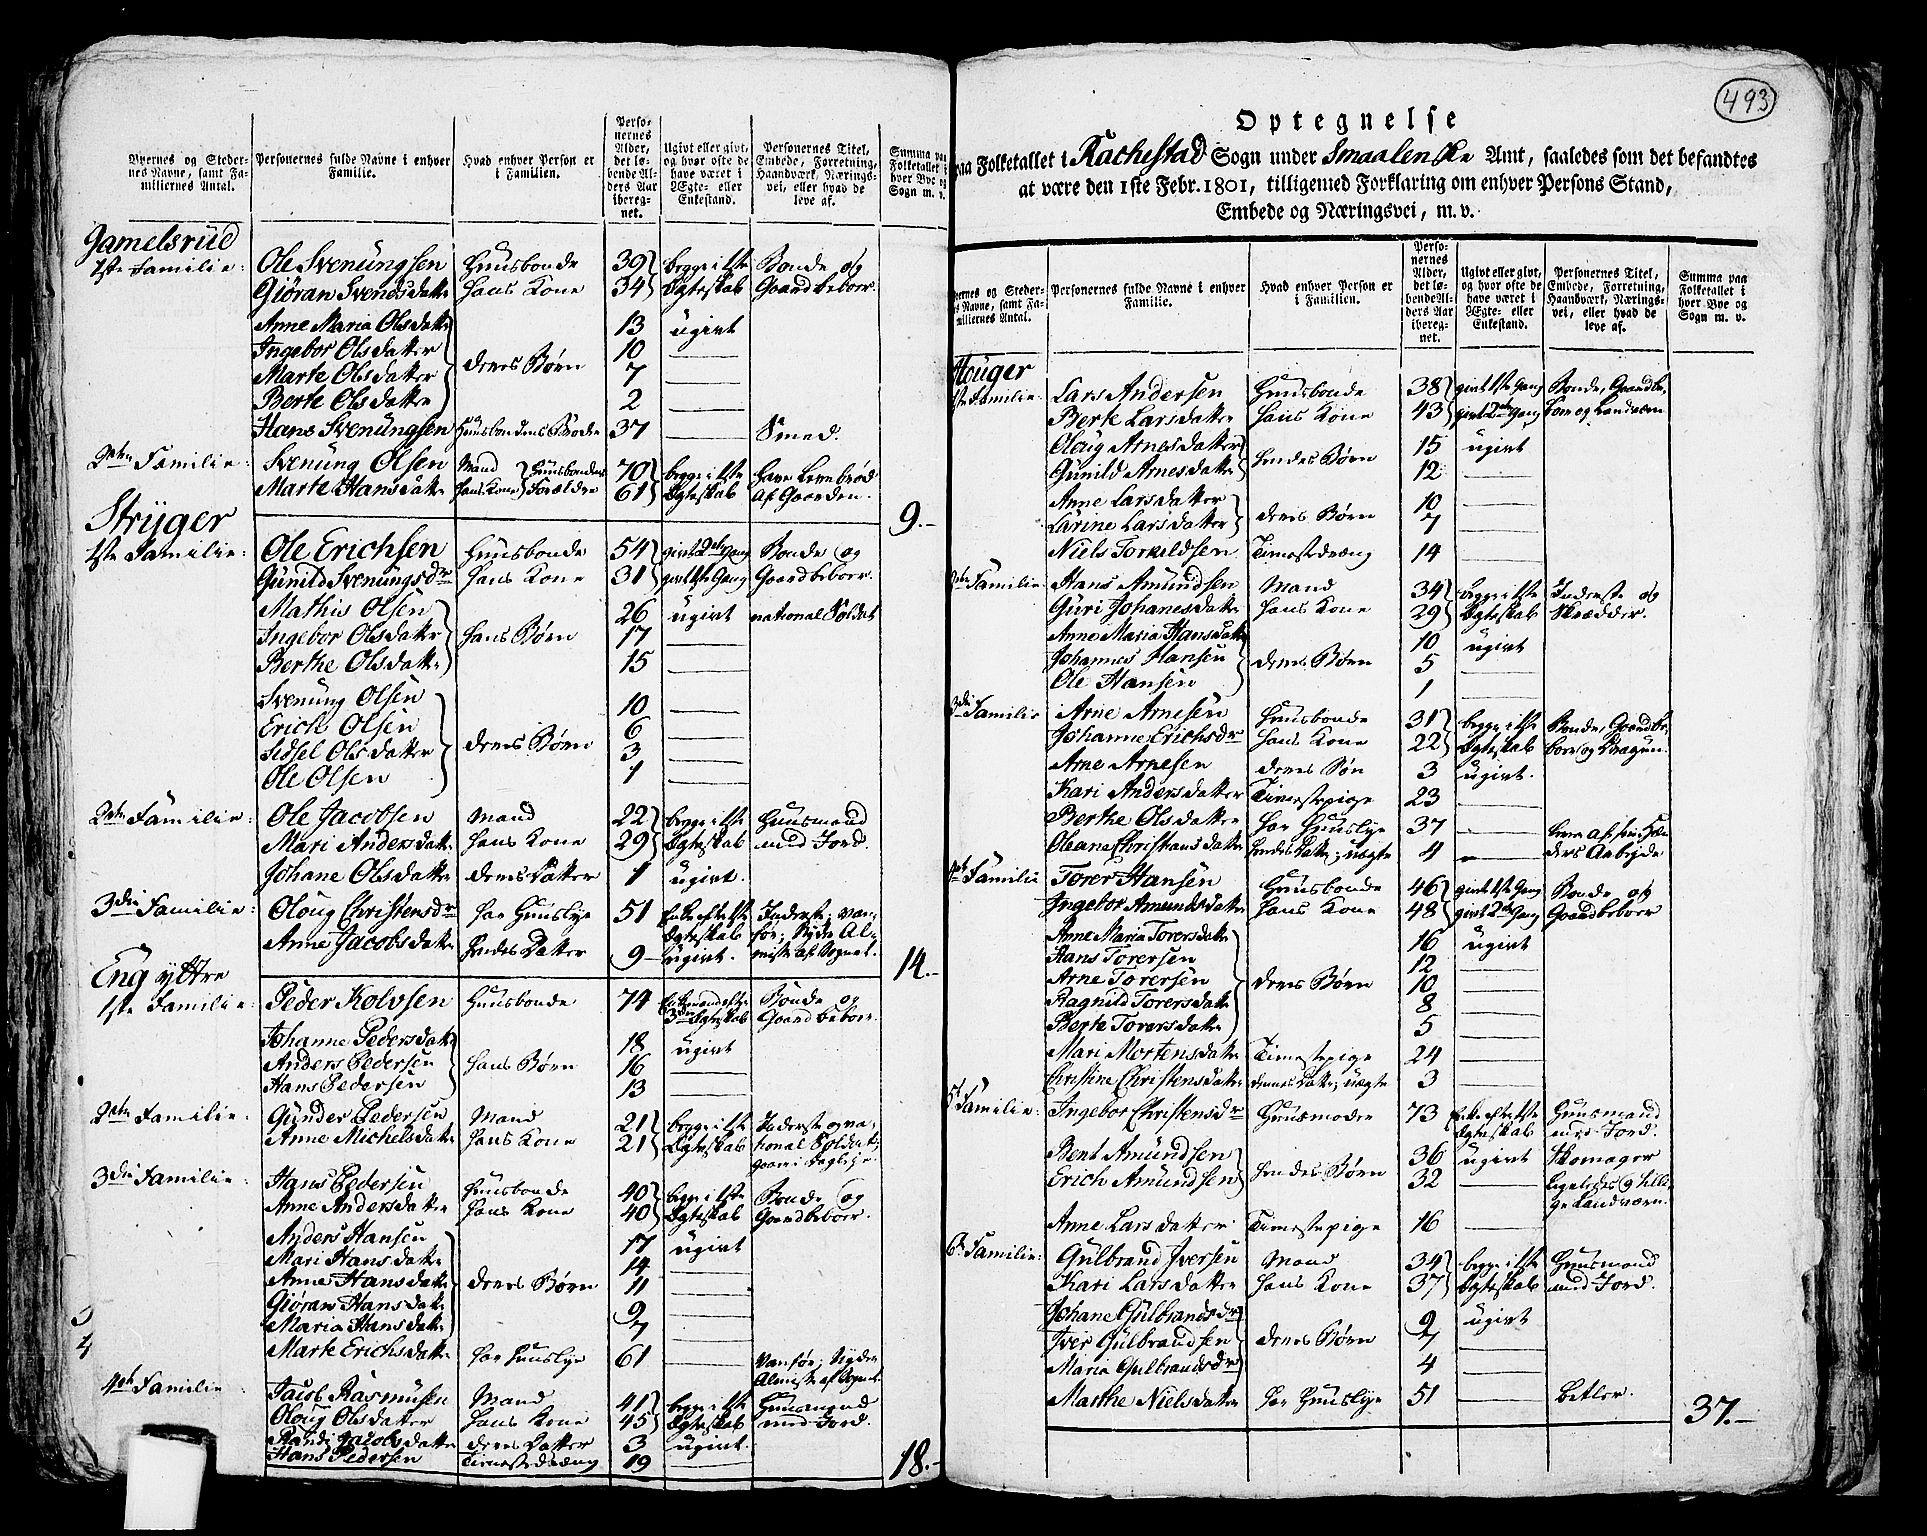 Byernes og Steder-
nes Navne, samt Fa-
miliernes Antal.
Personernes fulde Navne i enhver
Familie.
Hvad enhver Person er
i Familien.
Perso-
nernes
Alder,
det lø-
bende Al-
ders Aar
ibereg-
net.
Ugivt eller givt,
og hvor ofte de
have været i
Ægte- eller
Enkestand.
Personernes Titel,
Embede, Forretning,
Haandværk, Nærings-
vei, eller hvad de
leve af.
Summa paa
Folketallet i
hver Bye og
Sogn m. v.
Gamelsrud
1ste Familie: Ole Svenungsen Huusbonde 39 begge i 1ste Bonde og
Giøran Svendsdatter hans Kone 34 Ægteskab Gaardbeboer.
Anne Maria Olsdatter 13 ugivt
Ingebor Olsdatter 10
Marte Olsdatter deres Børn 7
Berte Olsdatter 2
Hans Svenungsen Huusbondens Broder 37 Smed.
2den Familie: Svenung Olsen Mand Huusbondens 70 begge i 1ste have Levebrød
Marte Hansdatter hans Kone Forældre 61 Ægteskab af Gaarden.
9.-
Stryger
1ste Familie: Ole Erichsen Huusbonde 54 givt 2den Gang Bonde og
Gunild Svenungsdr hans Kone 31 givt 1ste Gang Gaardbeboer.
Mathis Olsen 26 ugivt national Soldat
Ingebor Olsdatter hans Børn 17
Berthe Olsdatter 15
Svenung Olsen 10
Erich Olsen 6
Sidsel Olsdatter deres Børn 3
Ole Olsen 1
2den Familie: Ole Jacobsen Mand 22 begge i 1ste Huusmand
Mari Andersdatter hans Kone 29 Ægteskab med Jord.
Johane Olsdatter deres Datter 1 ugivt.
3die Familie: Oloug Christensdr har Huuslye 51 Enke efter 1ste Inderste; van-
Ægteskab før; Nyder Al-
Anne Jacobsdatter hendes Datter 9 ugivt. misse af Sognet.
14.-
Eng yttre
1ste Familie: Peder Kolvsen Huusbonde 74 Enkemand efter Bonde og
3die Ægteskab Gaardbeboer.
Johanne Pedersdatter 18 ugivt
Anders Pedersen hans Børn 16
Hans Pedersen 13
2den Familie: Gunder Pedersen Mand 21 begge i 1ste Inderste og na-
Anne Michelsdatter hans Kone 21 Ægteskab tional Soldat,
gaaer i Dagleje.
3die Familie: Hans Pedersen Huusbonde 40 begge i 1ste Bonde og
Anne Andersdatter hans Kone 40 Ægteskab Gaardbeboer.
Anders Hansen 17 ugivt
Mari Hansdatter 14
Anne Hansdatter deres Børn 11
Giøran Hansdatter 9
Maria Hansdatter 7
Marte Erichsdatter har huuslye 61 Vanfør; Nyder
Almisse af Sognet
4de Familie: Jacob Rasmusen Mand 41 begge i 1ste Huusmand
Oloug Olsdatter hans Kone 45 Ægteskab med Jord.
Randi Jacobsdatter deres Datter 3 ugivt.
Hans Pedersen Tienestedreng 19
18.-
493
Optegnelse
paa Folketallet i Rachestad Sogn under Smaalenske Amt, saaledes som det befandtes
at være den 1ste Febr. 1801, tilligemed Forklaring om enhver Persons Stand,
Embede og Næringsvei, m. v.
ernes og Steder-
s Navne, samt Fa-
miliernes Antal.
Personernes fulde Navne i enhver
Familie.
Hvad enhver Person er
i Familien.
Perso-
nernes
Alder,
det lø-
bende Al-
ders Aar
ibereg-
net.
Ugivt eller givt,
og hvor ofte de
have været i
Ægte- eller
Enkestand.
Personernes Titel,
Embede, Forretning,
Haandværk, Nærings-
vei, eller hvad de
leve af.
Summa paa
Folketallet i
hver Bye og
Sogn m. v.
Houger
1ste Familie: Lars Andersen Huusbonde 38 givt 1ste Gang Bonde, Gaardbe-
Berte Larsdatter hans Kone 43 givt 2den Gang boer og Landværn
Oloug Arnesdatter 15 ugivt
Gunild Arnesdatter hendes Børn 12
Anne Larsdatter 10
Larine Larsdatter deres Børn 7
Niels Torkeldsen Tienestedreng 14
2den Familie: Hans Amundsen Mand 34 begge i 1ste Inderste og
Guri Johanesdatter hans Kone 29 Ægteskab Skrædder.
Anne Maria Hansdatter 10 ugivt
Johannes Hansen deres Børn 5
Ole Hansen 1
3die Familie Arne Arnesen Huusbonde 31 begge i 1ste Bonde, Gaardbe-
Johanne Erichsdr hans Kone 22 Ægteskab boer og Dragun.
Arne Arnesen deres Søn 3 ugivt.
Kari Andersdatter Tienestepige 23
Berthe Olsdatter har Huuslye 37 lever af sine Hæn-
Oleane Christiansdatter hendes Datter; uægte 4 ders Arbejde
4de Familie Torer Hansen Huusbonde 46 givt 1ste Gang Bonde og
Ingebor Amundsdatter hans Kone 48 givt 2den Gang Gaardbeboer
Anne Maria Torersdatter 16 ugivt
Hans Torersen 12
Arne Torersen deres Børn 10
Ragnild Torersdatter 8
Berte Torersdatter 5
Mari Mortensdatter Tienestepige 24
Christine Christensdatter dennes Datter; uægte 3
5t Familie: Ingebor Christensdr Huusmoder 73 Enke efter 1ste Huusmand
Ægteskab med Jord.
Bent Amundsen 36 ugivt Skomager
Erich Amundsen hendes Børn 32
Landværn.
Anne Larsdatter Tienestepige 16
6t Familie: Gulbrand Iversen Mand 34 begge i 1ste Huusmand
Kari Larsdatter hans Kone 37 Ægteskab med Jord.
Johane Gulbrandsdr 9 ugivt
Iver Gulbrandsen deres Børn 7
Maria Gulbrandsdr 4
Marthe Nielsdatter har Huuslye 51 betler.
37.-